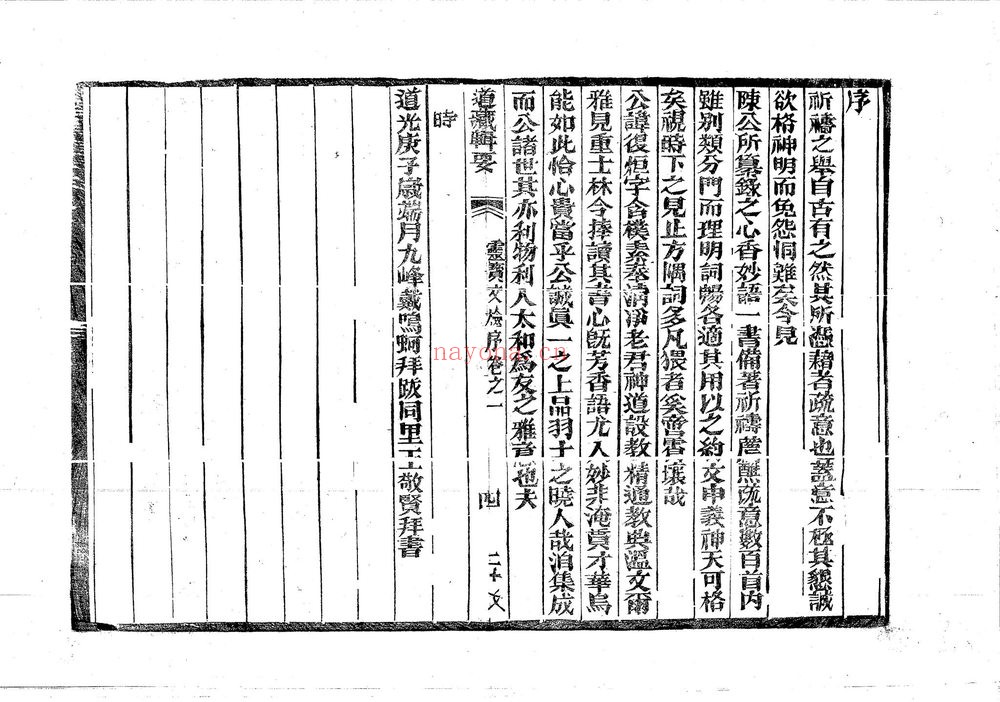 序
祈禱之舉自古有之然其所憑藉者疏意也蓋意不極其懇誠
欲格神明而免怨恫難矣今見
陳公所纂錄之心香妙語一書備著祈禱醮疏意數百首內
雖別類分門而理明詞暢各適其用以之約文申義神天可格
矣視時下之見止方隅詞多凡猥者奚啻雲壤哉
公諱復恒字含樸素奉清淨老君神道設教精通教典溫文爾
雅見重士林今捧讀其書心既芳香語尤入妙非淹貫才華烏
能如此怡心貴當乎公誠眞一之上品羽士之曉人哉洎集成
而公諸世其亦利物利人太和爲友之雅意也夫
道藏輯要
靈寶文檢序卷之一
四
時
道光庚子歲端月九峰戴鳴珂拜跋同里王敬賢拜書
nayona.cn